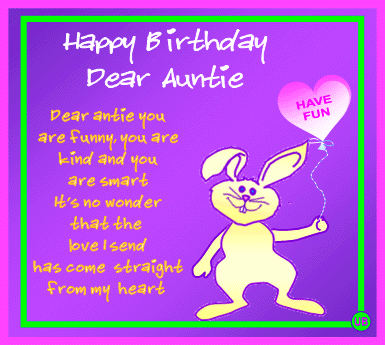 Happy Birthday
Dear Auntie
HAVE
FUN
Dear antie you
are funny, you are
kind and you
are smart
It's no wonder
that the
love I send
has come straight
from my heart